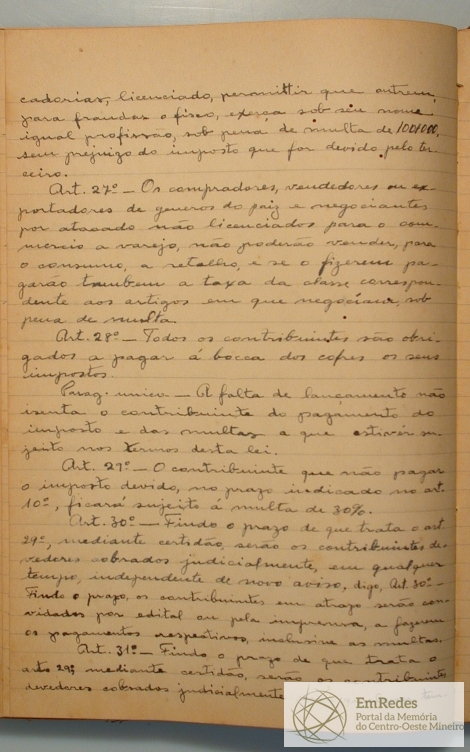 cadorias, licenciado, permittir que outrem,
para fraudar o fisco, exerça sob seu nome
igual profissão, sob pena de multa de 100$000,
sem prejuizo do imposto que for devido pelo ter-
ceiro.
Art. 27º — Os compradores, vendedores ou ex-
portadores de generos do paiz e negociantes
por atacado não licenciados para o com-
mercio a varejo, não poderão vender, para
o consumo, a retalho, e se o fizerem pa-
garão tambem a taxa da classe correspon-
dente aos artigos em que negociam, sob
pena de multa.
Art. 28º — Todos os contribuintes são obri-
gados a pagar á bocca dos cofres os seus
impostos.
Parag. unico. — A falta de lançamento não
isenta o contribuinte do pagamento do
imposto e das multas a que estiver su-
jeito nos termos desta lei.
Art. 29º — O contribuinte que não pagar
o imposto devido, no prazo indicado no art.
10º, ficará sujeito á multa de 30%.
Art. 30º — Findo o prazo de que trata o art
29º, mediante certidão, serão os contribuintes de-
vedores cobrados judicialmente, em qualquer
tempo, independente de novo aviso. digo, Art. 30º —
Findo o prazo, os contribuintes em atrazo serão con-
vidados por edital ou pela imprensa, a fazerem
os pagamentos respectivos, inclusive as multas.
Art. 31º — Findo o prazo de que trata o
arto 29º, mediante certidão, serão os contribuintes
devedores cobrados judicialmente
EmRedes
Portal da Memória
do Centro-Oeste Mineiro